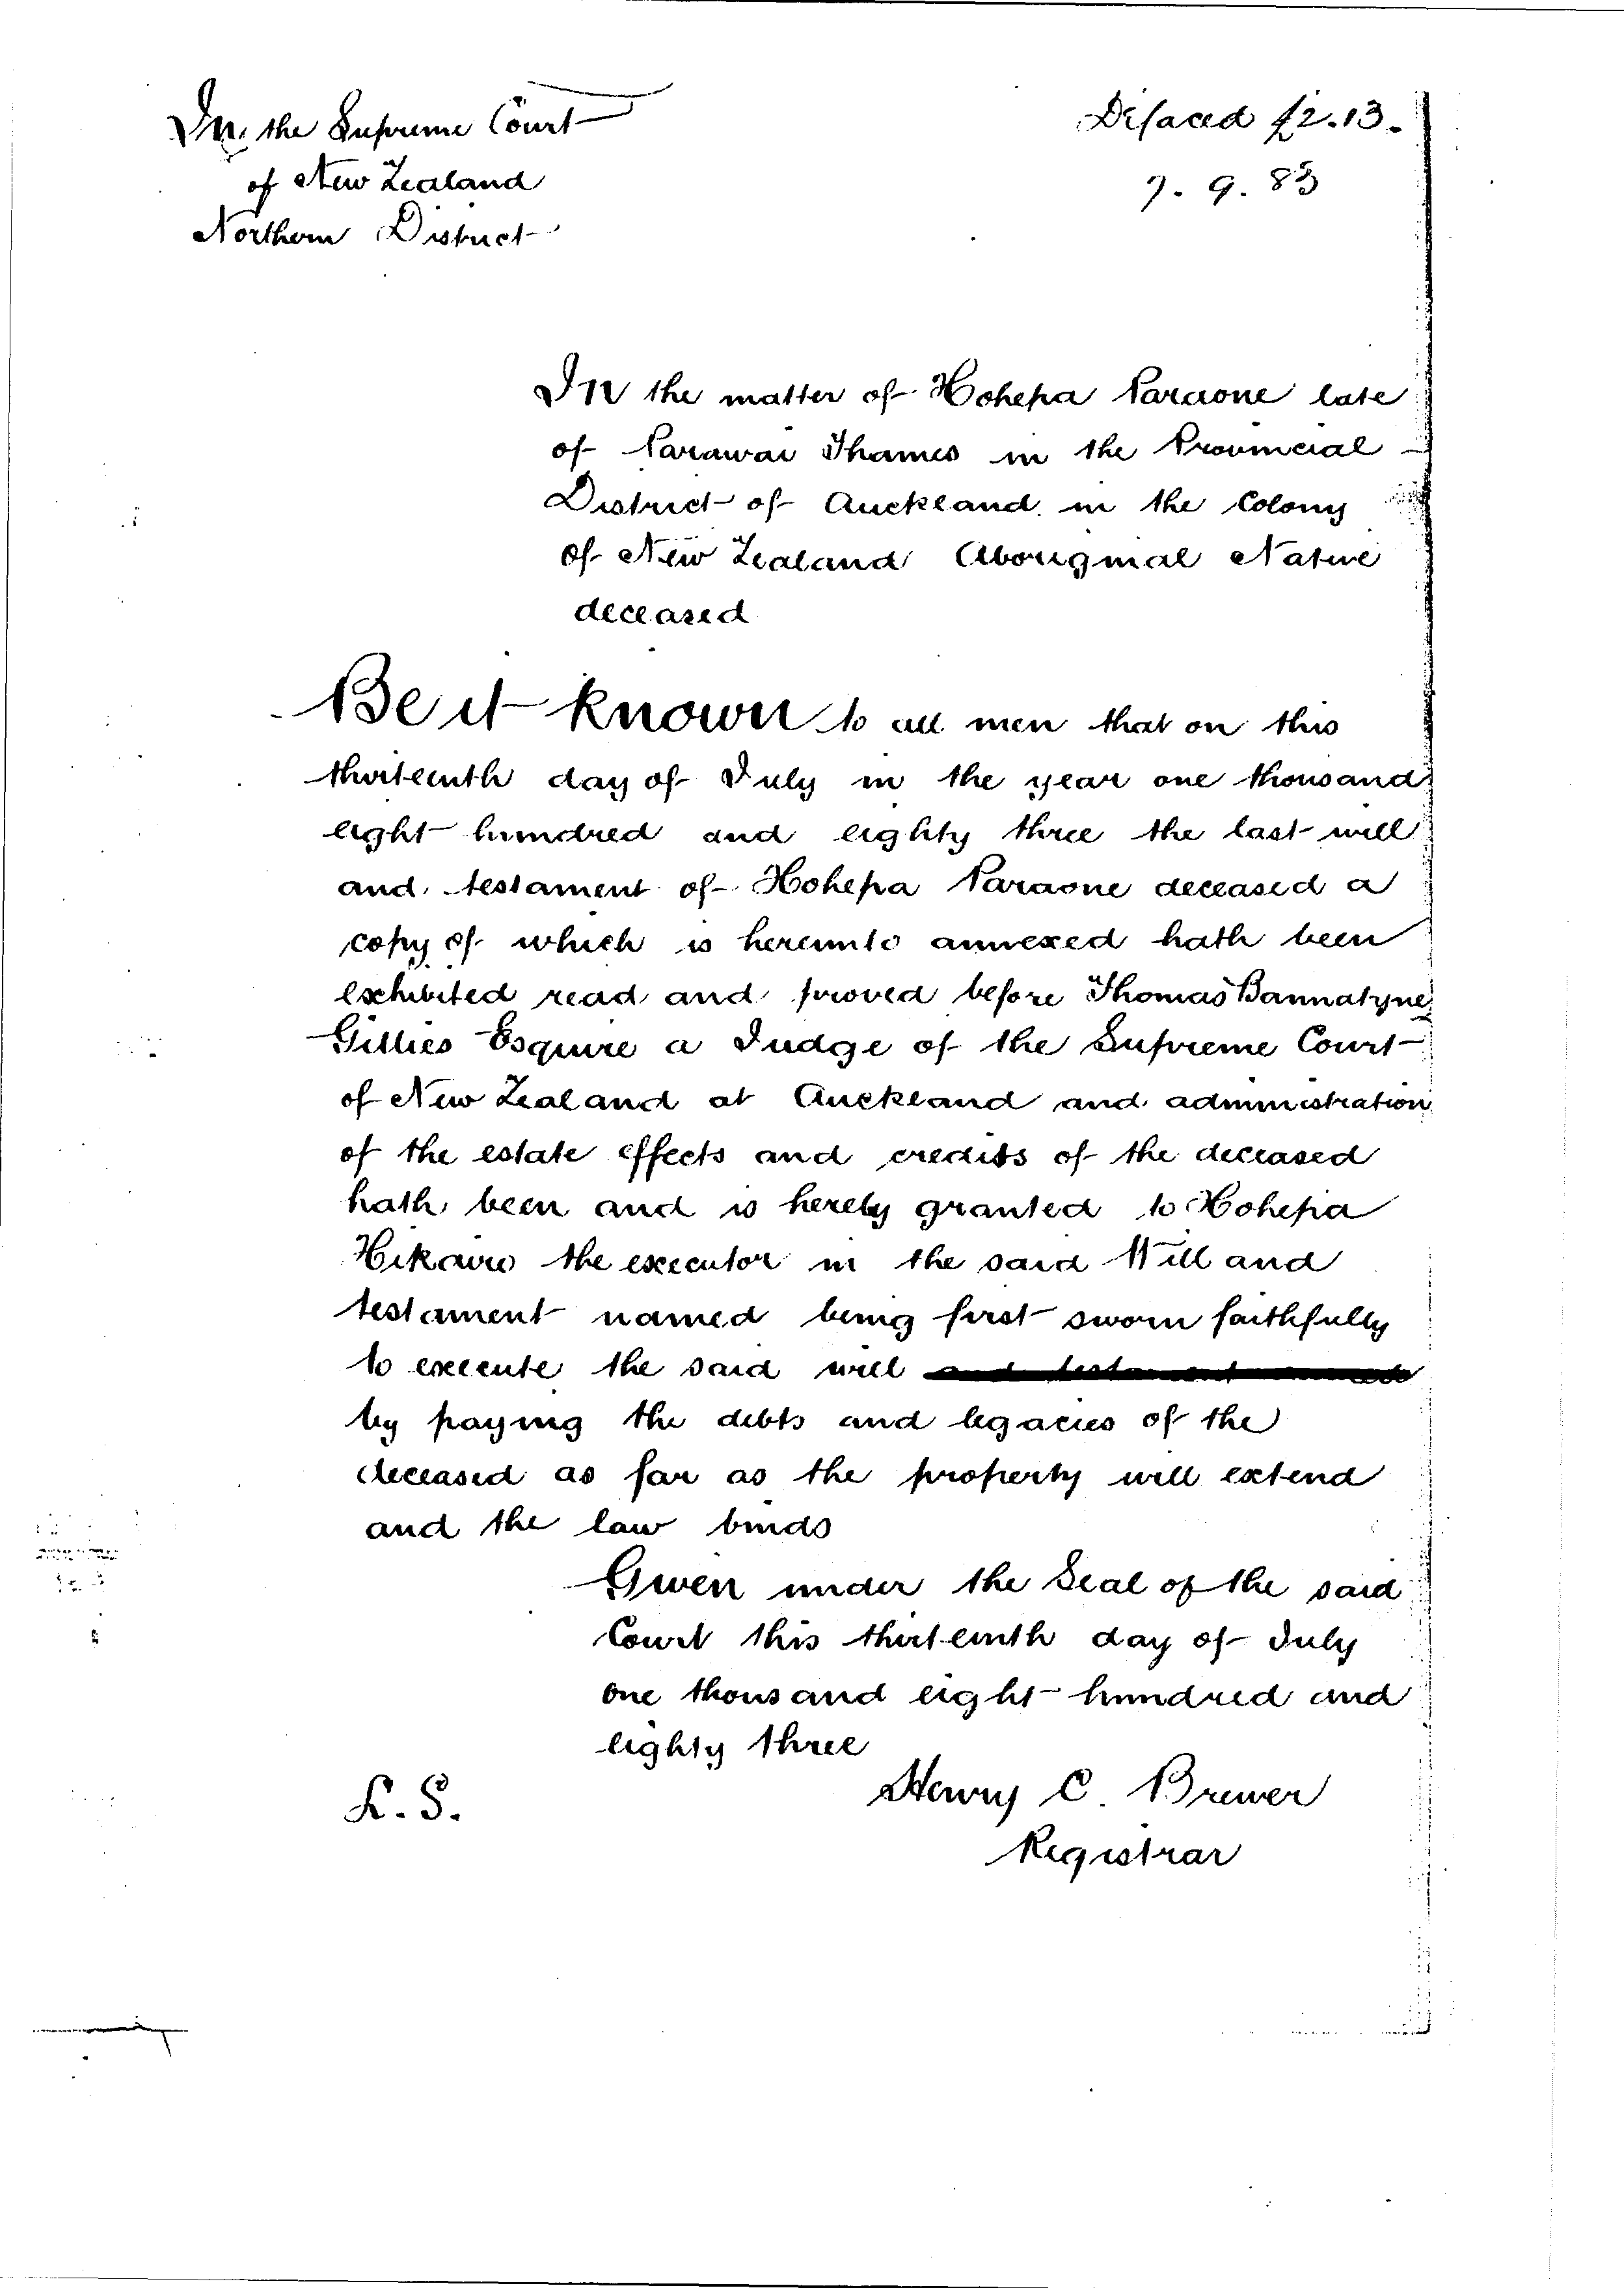 In the Supreme Court
of New Zealand
Northern District
Defaced £2.13.
7. 9. 83
In the matter of Hohepa Paraone late
of Parawai Thames in the Provincial
District of Auckland in the Colony
of New Zealand Aboriginal Native
deceased
Be it known to all men that on this
thirteenth day of July in the year one thousand
eight hundred and eighty three the last will
and testament of Hohepa Paraone deceased a
copy of which is hereunto annexed hath been
exhibited read and proved before Thomas Bannatyne
Gillies Esquire a Judge of the Supreme Court
of New Zealand at Auckland and administration
of the estate effects and credits of the deceased
hath been and is hereby granted to Hohepa
Hikairo the executor in the said Will and
testament named being first sworn faithfully
to execute the said will
by paying the debts and legacies of the
deceased as far as the property will extend
and the law binds
Given under the Seal of the said
Court this thirteenth day of July
one thousand eight hundred and
eighty three
Henry C. Brewer
L.S.
Registrar